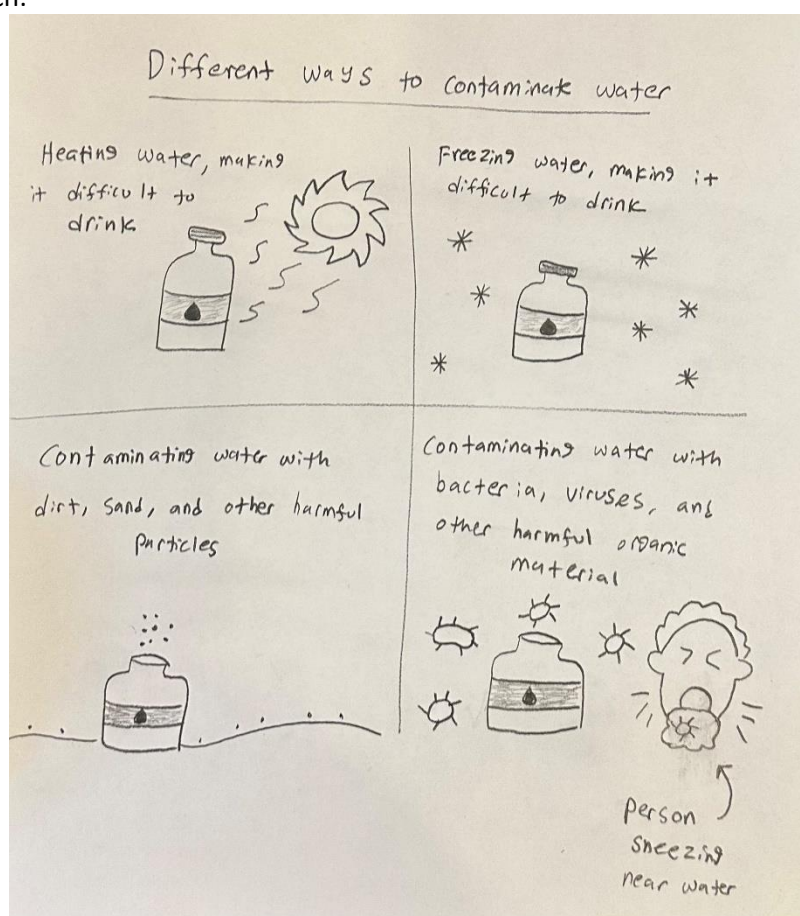 ch.
Different ways to contaminate water
Heating water, making
it difficult to
drink
Freezing water, making it
difficult to drink
Contaminating water with
dirt, sand, and other harmful
particles
Contaminating water with
bacteria, viruses, and
other harmful organic
material
person
sneezing
near water